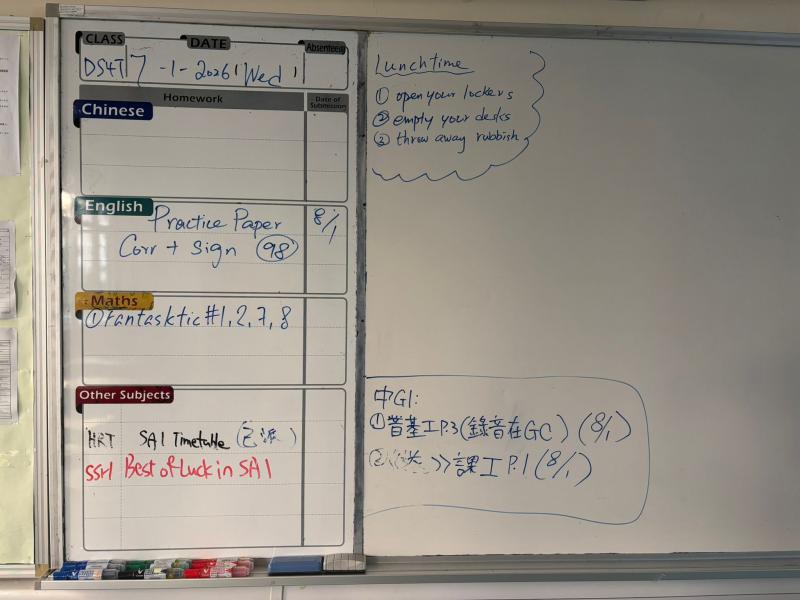 CLASS DATE Absentees
DS4T 7-1-2026 Wed
Homework Date of Submission
Chinese
English
Practice Paper 8/1
Corr + Sign 98
Maths
① Fantasktic #1, 2, 7, 8
Other Subjects
HRT SA1 Timetable (已派)
SSH Best of Luck in SA1
Lunchtime
① open your lockers
② empty your desks
③ throw away rubbish
中G1:
① 普基工P.3 (錄音在GC) (8/1)
② 》課工P.1 (8/1)